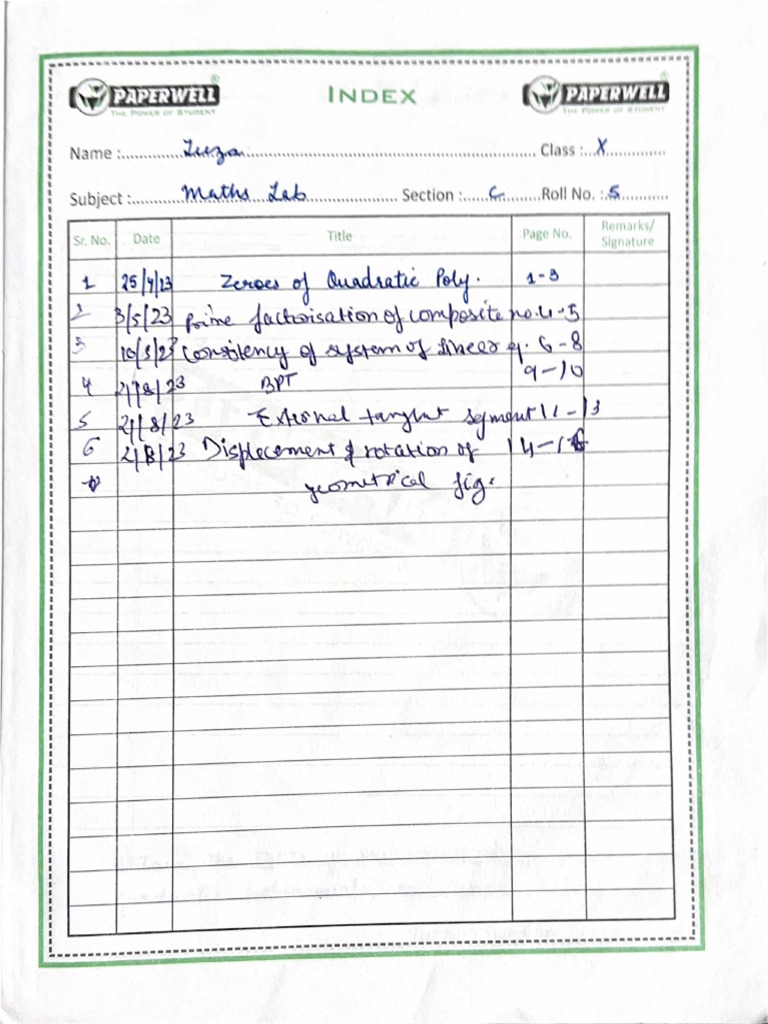 PAPERWELL® INDEX PAPERWELL®
THE POWER OF STUDENT THE POWER OF STUDENT
Name : Zuza Class : X
Subject : Maths Lab Section : C Roll No. : 5
Sr. No. Date Title Page No. Remarks/ Signature
1 25/4/23 Zeroes of Quadratic Poly. 1-3
2 3/5/23 prime factorisation of composite no. 4-5
3 10/5/23 Consitency of system of linear eq. 6-8
4 21/8/23 BPT 9-10
5 21/8/23 External tangent segment 11-13
6 2/8/23 Displacement & rotation of 14-16
geometrical fig.